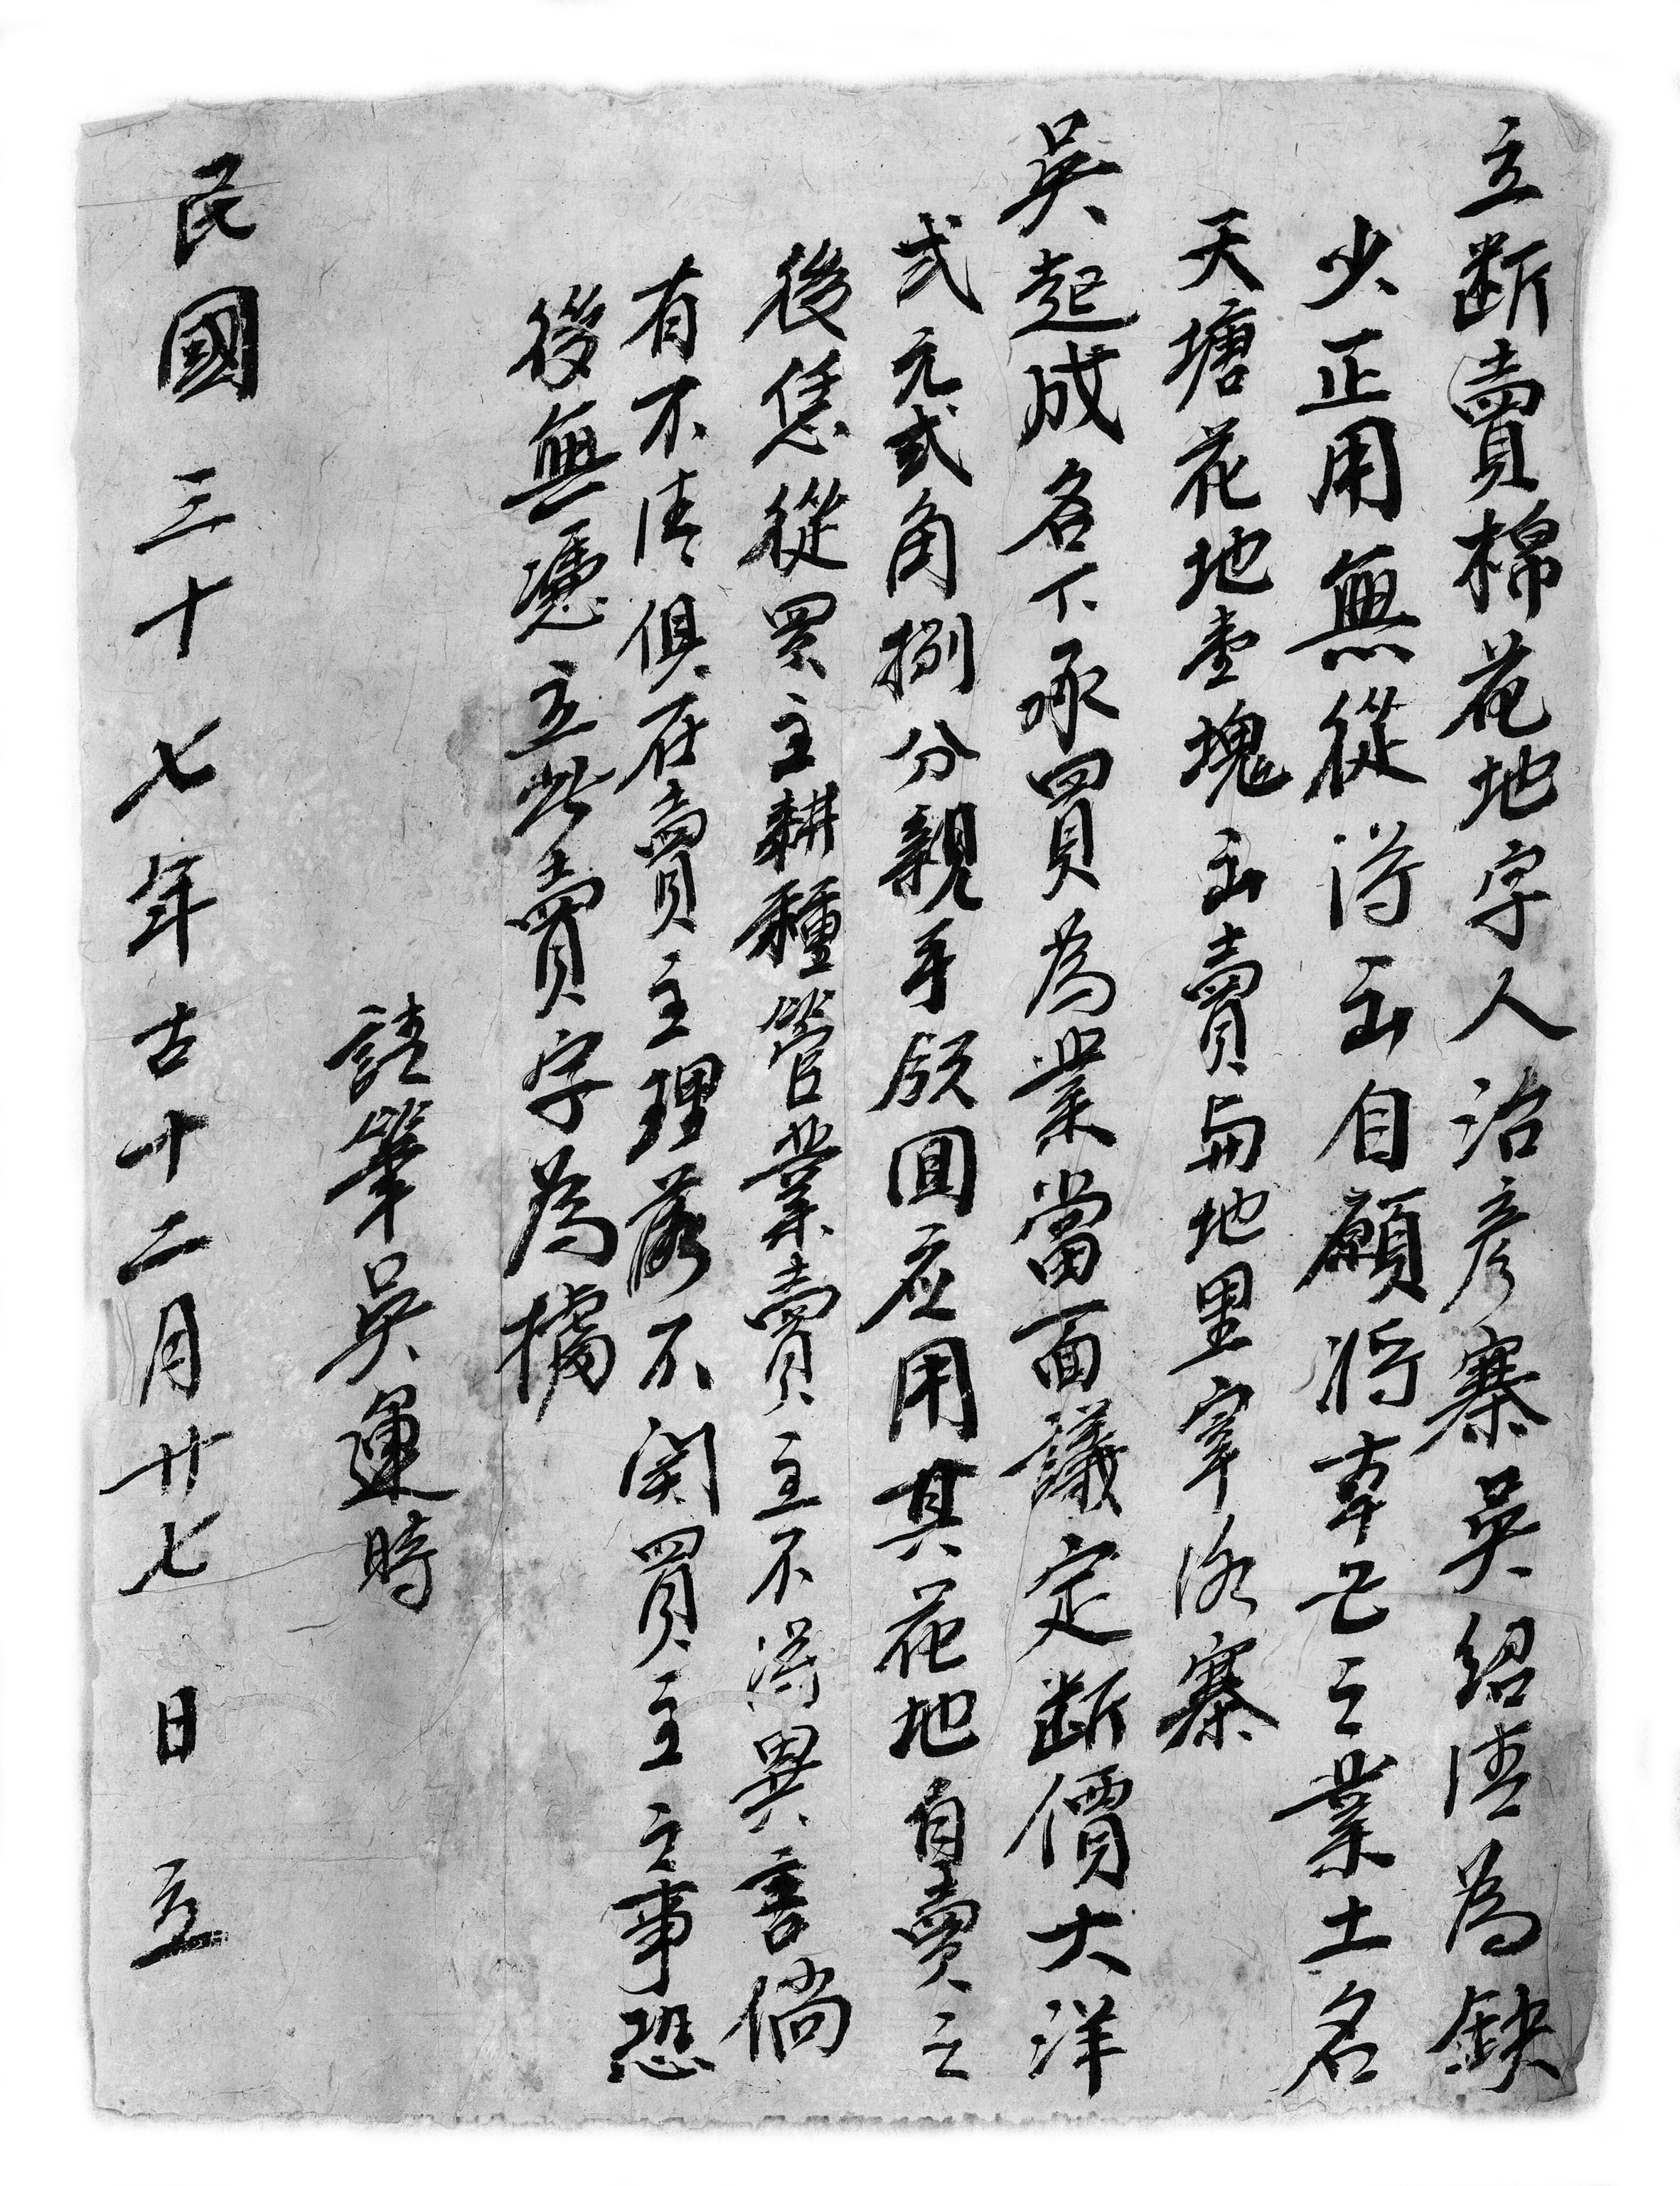 立断賣棉花地字人治彦寨吳紹清為缺
少正用無從淂出自願將本己之業土名
天塘花地壹塊出賣與地里宰洛寨
吳起成名下承買為業當面議定断價大洋
弍元弍角捌分親手領囬应用其花地自賣之
後恁從買主耕種管業賣主不淂異言倘
有不清俱在賣主理落不関買主之事恐
後無憑立此賣字為據
請筆吳運時
民國三十七年古十二月廿七日立